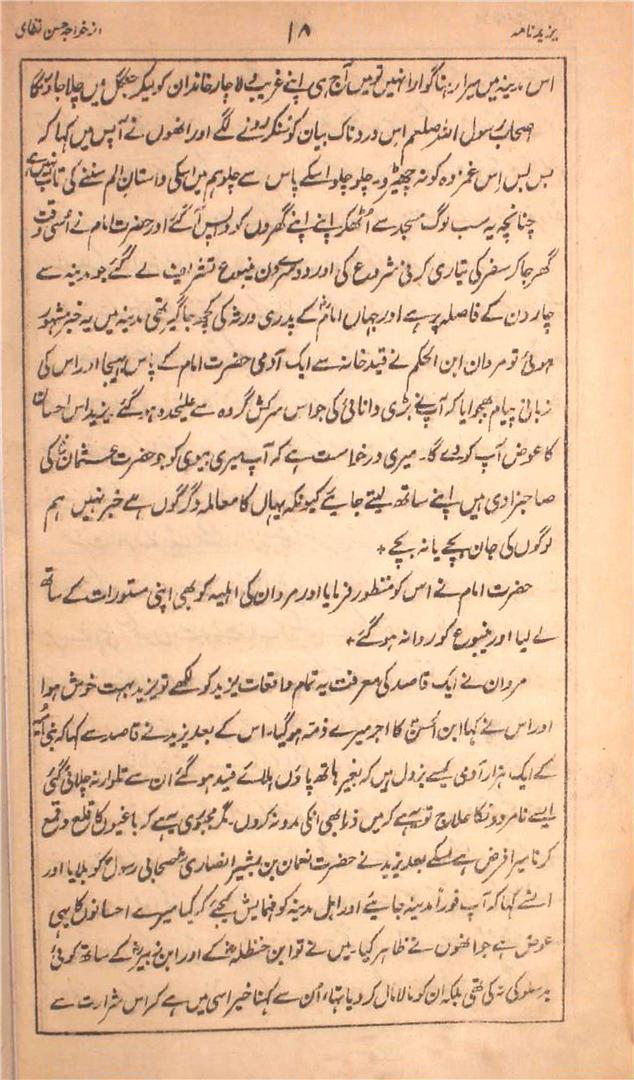 یزید نامہ
۱۸
از خواجہ حسن نظامی
اس مدینہ میں میرا رہنا گوارا نہیں تو میں آج ہی اپنے غریب و لاچار خاندان کو لیکر جنگل میں چلا جاؤنگا
اصحاب رسول اللہ صلعم اس دردناک بیان کو سنکر رونے لگے اور انھوں نے آپس میں کہا کہ
بس بس اس غمزدہ کو نہ چھیڑو۔ چلو چلو اسکے پاس سے چلو ہم میں اسکی داستانِ الم سننے کی تاب نہیں ہے
چنانچہ یہ سب لوگ مسجد سے اُٹھکر اپنے اپنے گھروں کو واپس آ گئے اور حضرت امام نے اُسی وقت
گھر جا کر سفر کی تیاری کرنی شروع کی اور دوسرے دن ینبوع تشریف لے گئے جو مدینہ سے
چار دن کے فاصلہ پر ہے اور جہاں امامؓ کے پدری ورثہ کی کچھ جاگیر تھی مدینہ میں یہ خبر مشہور
ہوئی تو مروان ابن الحکم نے قید خانہ سے ایک آدمی حضرت امام کے پاس بھیجا اور اس کی
زبانی پیام بھجوایا کہ آپنے بڑی دانائی کی جو اس سرکش گروہ سے علیٰحدہ ہو گئے۔ یزید اس احسان
کا عوض آپ کو دے گا۔ میری درخواست ہے کہ آپ میری بیوی کو جو حضرت عثمانؓ کی
صاحبزادی ہیں اپنے ساتھ لیتے جایئے کیونکہ یہاں کا معاملہ دگرگوں ہے خبر نہیں ہم
لوگوں کی جان بچے یا نہ بچے ٭
حضرت امام نے اس کو منظور فرمایا اور مروان کی اہلیہ کو بھی اپنی مستورات کے ساتھ
لے لیا اور ینبوع کو روانہ ہو گئے ٭
مروان نے ایک قاصد کی معرفت یہ تمام واقعات یزید کو لکھے تو یزید بہت خوش ہوا
اور اس نے کہا ابن الحسینؓ کا اجر میرے ذمہ ہو گیا۔ اس کے بعد یزید نے قاصد سے کہا کہ بنی اُمیہ
کے ایک ہزار آدمی کیسے بزدل ہیں کہ بغیر ہاتھ پاؤں ہلائے قید ہو گئے ان سے تلوار نہ چلائی گئی
ایسے نامردونکا علاج تو یہ ہے کہ میں ذرا بھی انکی مدد نہ کروں۔ مگر مجبوری یہ ہے کہ باغیوں کا قلع و قمع
کرنا میرا فرض ہے اسکے بعد یزید نے حضرت نعمان بن بشیر انصاریؓ صحابی رسولؐ کو بلایا اور
انسے کہا کہ آپ فوراً مدینہ جایئے اور اہل مدینہ کو فہمایش کیجئے کہ کیا میرے احسانوں کا یہی
عوض ہے جو انھوں نے ظاہر کیا۔ میں نے تو ابن حنظلہؓ کے اور ابن زبیرؓ کے ساتھ کوئی
بدسلوکی نہ کی تھی بلکہ ان کو مالا مال کر دیا تھا، اُن سے کہنا خیر اسی میں ہے کہ اس شرارت سے